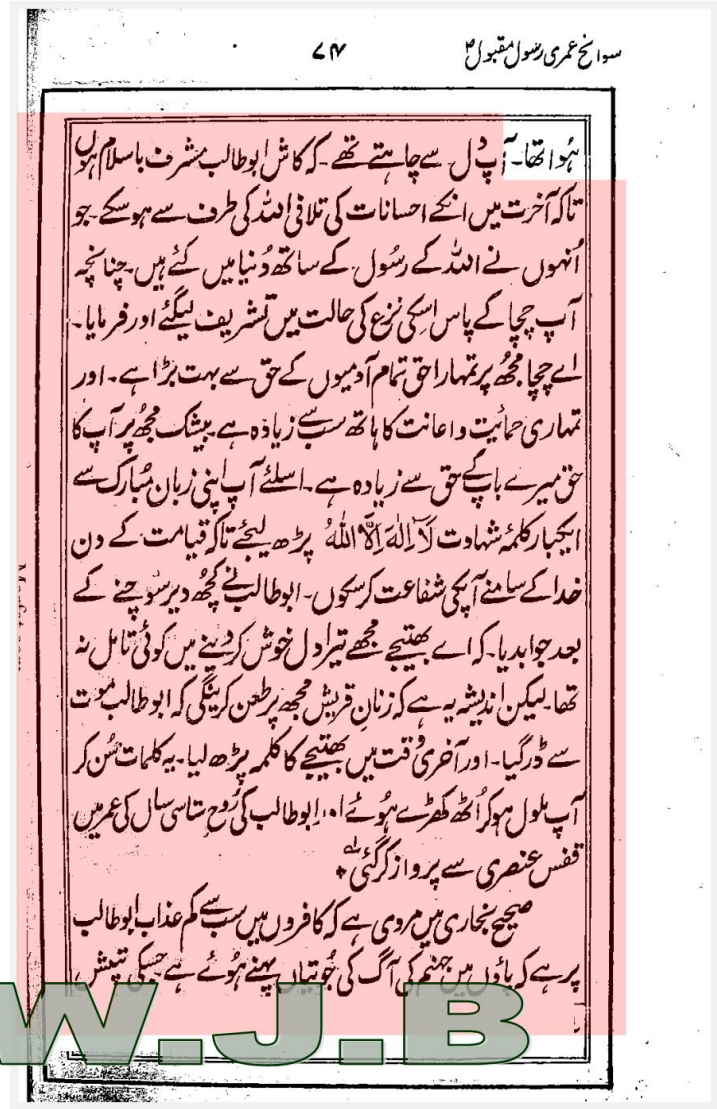 سوانح عمری رسول مقبولؐ ۷۴
ہُوا تھا۔ آپ دل سے چاہتے تھے۔ کہ کاش ابوطالب مشرف باسلام ہوں
تاکہ آخرت میں انکے احسانات کی تلافی اللہ کی طرف سے ہوسکے۔ جو
اُنہوں نے اللہ کے رسُول کے ساتھ دُنیا میں کئے ہیں۔ چنانچہ
آپ چچا کے پاس اسکی نزع کی حالت میں تشریف لیگئے اور فرمایا۔
اے چچا مجھُ پر تمہارا حق تمام آدمیوں کے حق سے بہت بڑا ہے۔ اور
تمہاری حمائیت و اعانت کا ہاتھ سب سے زیادہ ہے۔ بیشک مجھُ پر آپ کا
حق میرے باپ کے حق سے زیادہ ہے۔ اسلئے آپ اپنی زبان مُبارک سے
ایکبار کلمۂ شہادت لَآ اِلٰهَ اِلَّا اللّٰهُ پڑھ لیجئے تاکہ قیامت کے دن
خدا کے سامنے آپکی شفاعت کرسکوں۔ ابوطالب نے کچھُ دیر سوچنے کے
بعد جوابدیا۔ کہ اے بھتیجے مجھے تیرا دل خوش کردینے میں کوئی تامل نہ
تھا۔ لیکن اندیشہ یہ ہے کہ زنانِ قریش مجھ پر طعن کرینگی کہ ابوطالب موت
سے ڈر گیا۔ اور آخری وقت میں بھتیجے کا کلمہ پڑھ لیا۔ یہ کلمات سُن کر
آپ ملول ہوکر اُٹھ کھڑے ہُوئے اور ابوطالب کی رُوح ستاسی سال کی عمر میں
قفس عنصری سے پرواز کرگئی
صحیح بخاری میں مروی ہے کہ کافروں میں سب سے کم عذاب ابوطالب
پر ہے کہ پاؤں میں جہنم کی آگ کی جُوتیاں پہنے ہُوئے ہے جسکی تپش
W.J.B